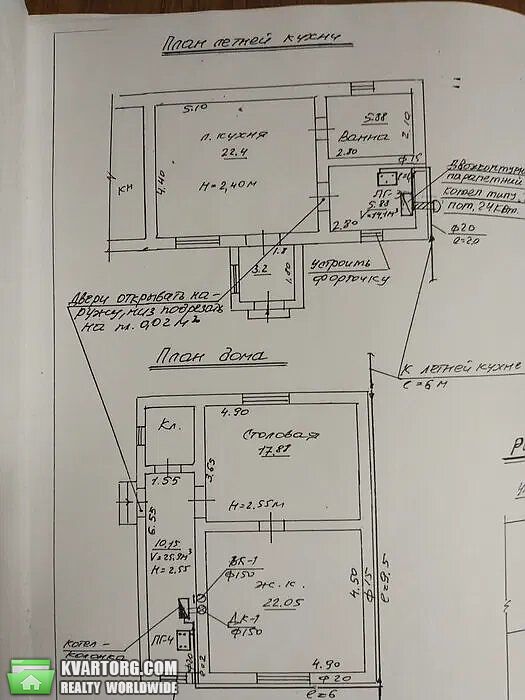 План летней кухни
5.10
5.88
Ванна
2.10
2.80
л. кухня
22.4
4.40
H = 2,40 м
кн
ф15
ПГ-
5.88
V=14,1 м³
2.80
Двухконтурн
парапетный
котел типу
пот. 24 кВт.
ф20
l=2.0
1.8
3.2
1.80
Устроить
форточку
Двери открывать на-
ружу, низ подрезать
на пл. 0,02 м²
План дома
К летней кухне
l = 6 м
4.90
Кл.
Столовая
17.87
1.55
3.65
H = 2.55 м
6.55
10.15
V=25,9 м³
H = 2.55
ВК-1
ф150
ж.к.
22.05
ДК-1
ф150
4.50
ф15
l = 9,5
котел-
колонка
ПГ-4
ф20
l=2
4.90
ф20
l = 6
KVARTORG.COM
REALTY WORLDWIDE